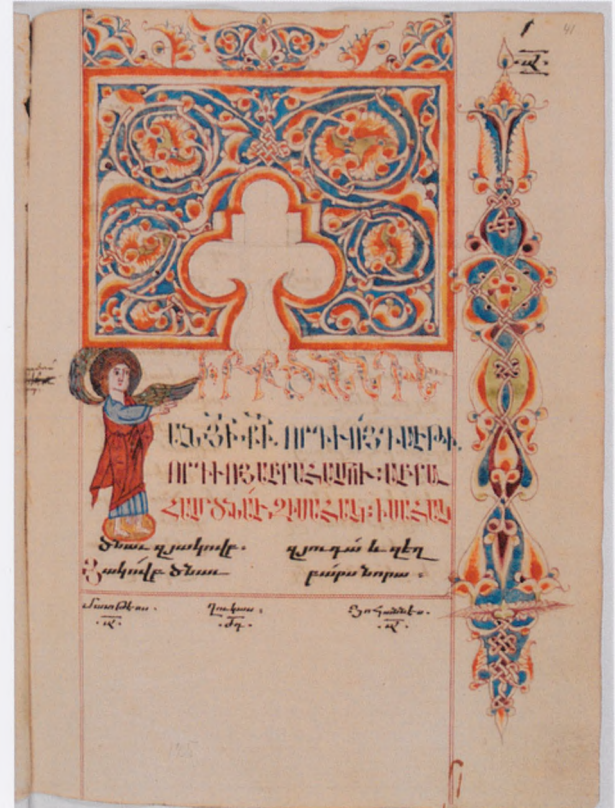 41
.ա.
ԻՐՔ ԾՆՆԴԵ
ԱՆ ՅԻ ՔԻ. ՈՐԴՒՈՅ ԴԱՒԹԻ.
ՈՐԴՒՈՅ ԱԲՐԱՀԱՄՈՒ: ԱԲՐԱ
ՀԱՄ ԾՆԱՒ ԶԻՍԱՀԱԿ: ԻՍԱՀԱԿ
ծնաւ զյակովբ.
Յակովբ ծնաւ
զյուդա և զեղ
բարս նորա.
Մատթէոս. Ղուկաս. Յովաննէս.
.ա. .ժդ. .ա.